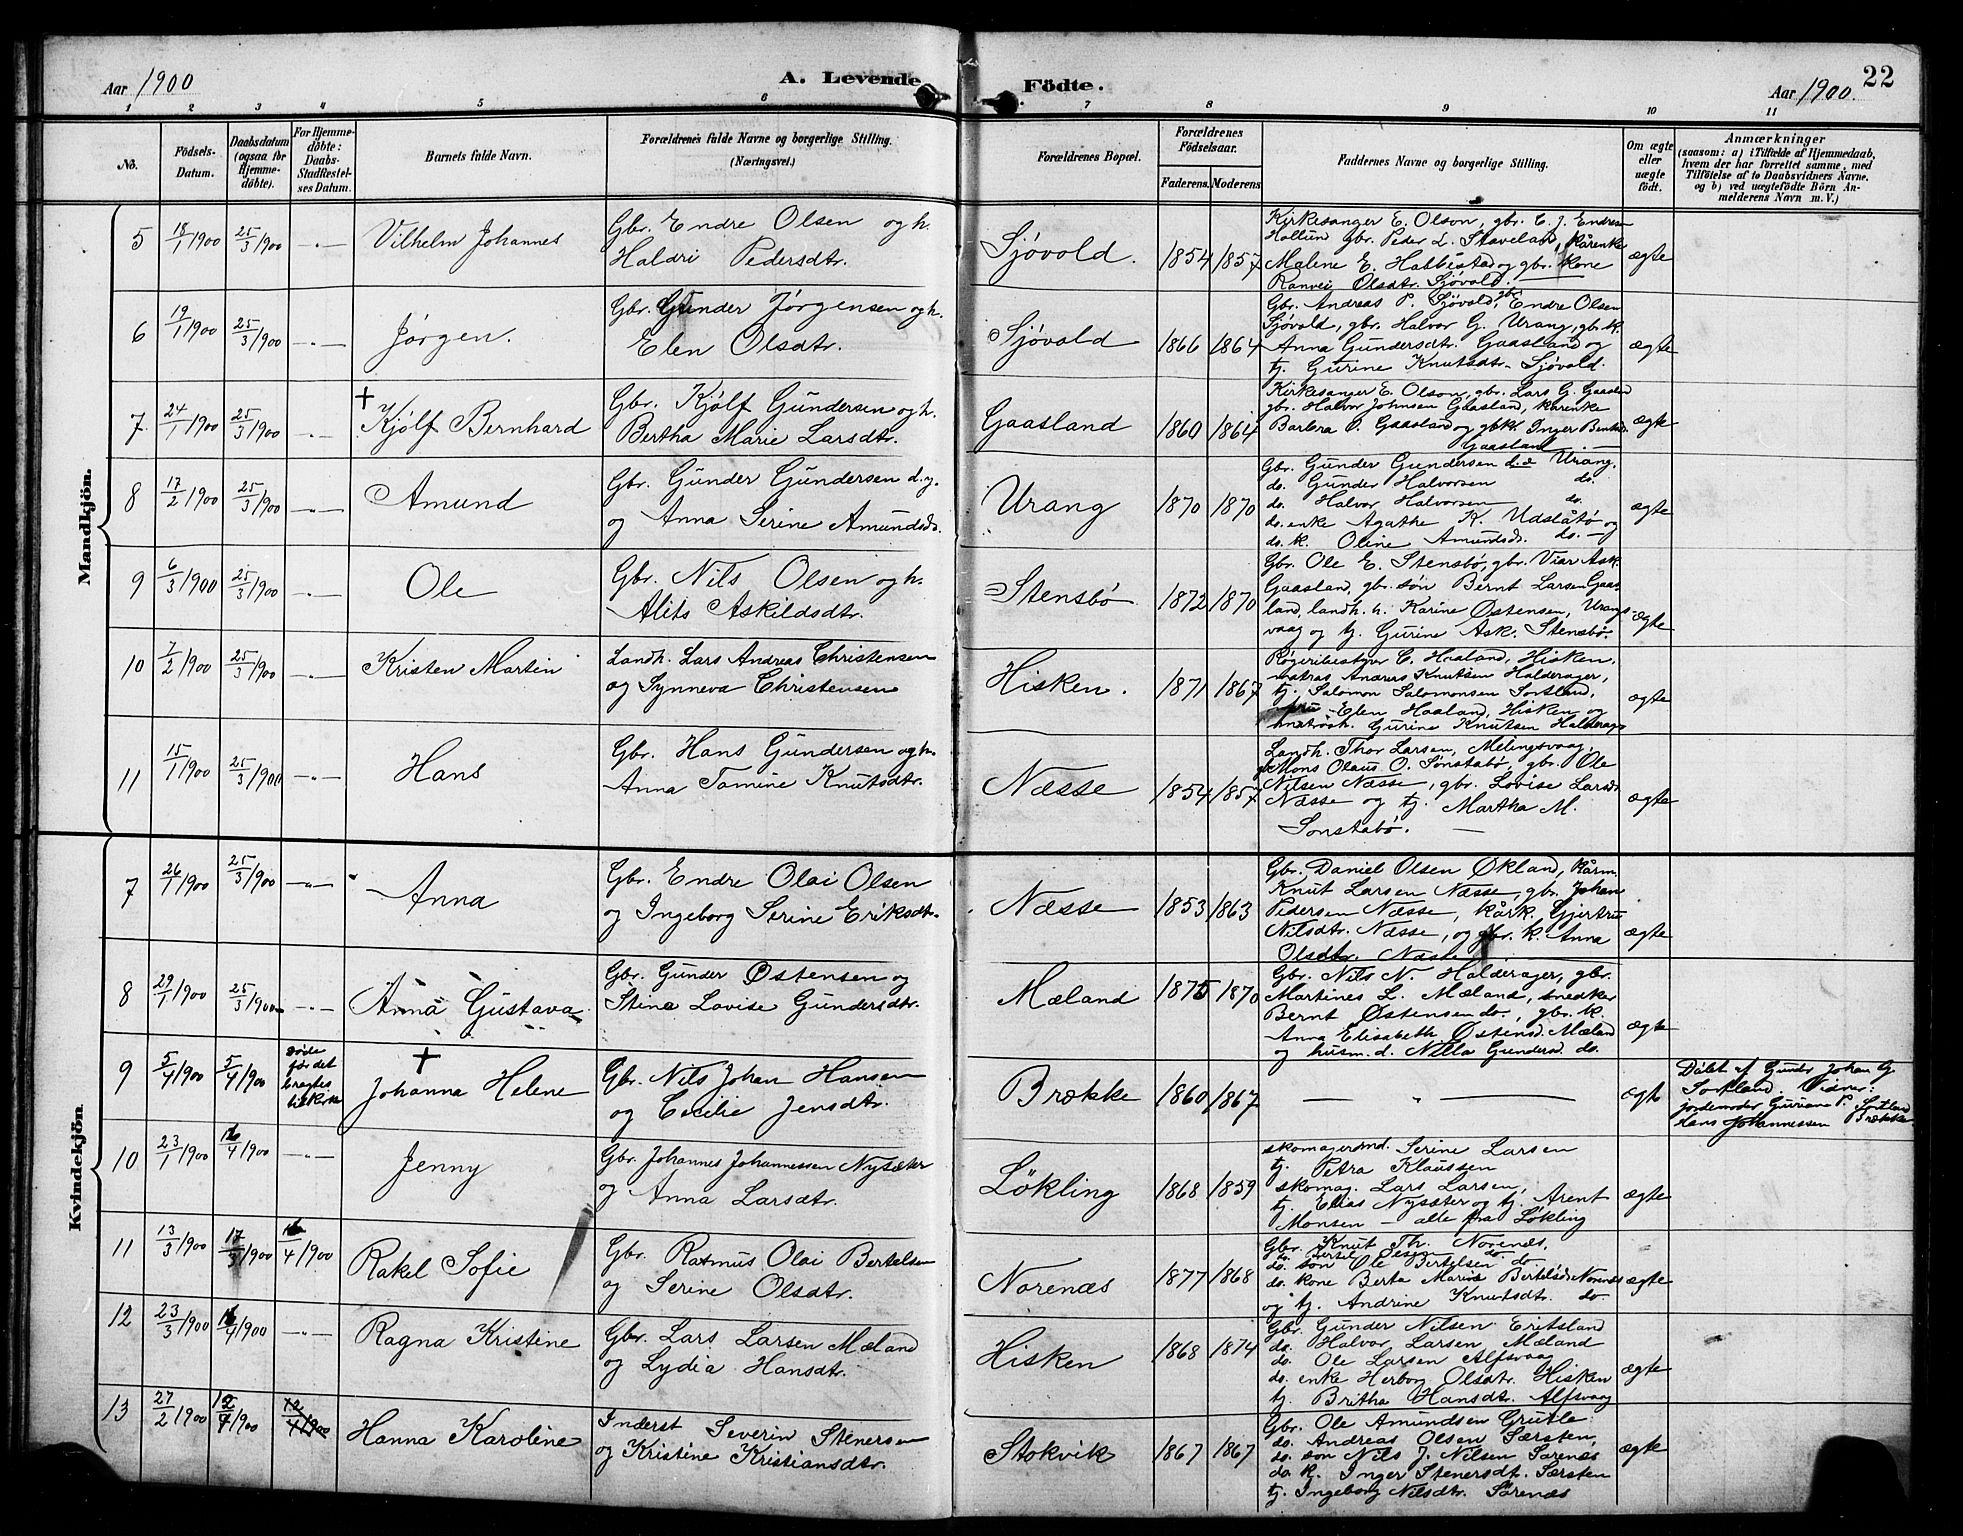 Aar 1900
A. Levende
Födte.
Aar 1900.
22
1 2 3 4 5 6 7 8 9 10 11
No.
Födsels-
Datum.
Daabsdatum
(ogsaa for
Hjemme-
döbte).
For Hjemme-
döbte:
Daabs-
Stadfæstel-
ses Datum.
Barnets fulde Navn.
Forældrenes fulde Navne og borgerlige Stilling.
(Næringsvei.)
Forældrenes Bopæl.
Forældrenes
Födselsaar.
Faderens. Moderens
Faddernes Navne og borgerlige Stilling.
Om ægte
eller
uægte
födt.
Anmærkninger
(saasom: a) i Tilfælde af Hjemmedaab,
hvem der har forrettet samme, med
Tilföielse af to Daabsvidners Navne,
og b) ved uægtefödte Börn An-
melderens Navn m. V.)
Mandkjön.
5 18/1 1900 25/3 1900 -"- Vilhelm Johannes
Gbr. Endre Olsen og h.
Haldri Pedersdtr.
Sjøvold. 1854 1857
Kirkesanger E. Olson, gbr. E. J. Endresen
Hollund gbr. Peder L. Staveland, kårenke
Malene E. Habbestad og gbr. kone
Ranvei Olsdtr. Sjøvold.
ægte
6 19/1 1900 25/3 1900 -"- Jørgen.
Gbr. Gunder Jørgensen og h.
Elen Olsdtr.
Sjøvold 1866 1864
Gbr. Andreas P. Sjøvold, gbr. Endre Olsen
Sjøvold, gbr. Halvor G. Urang, gbr. k.
Anna Gundersdtr. Gaasland og
tj. Gurine Knutsdtr. Sjøvold.
ægte
7. 24/1 1900 25/3 1900 -"- † Kjølf Bernhard
Gbr. Kjølf Gundersen og h.
Bertha Marie Larsdtr.
Gaasland 1860 1864
Kirkesanger E. Olson, gbr. Lars G. Gaasland
gbr. Halvor Johnsen Gaasland, kårenke
Barbra O. Gaasland og gbk. Inger
Gaasland
ægte
8 17/2 1900 25/3 1900 -"- Amund
Gbr. Gunder Gundersen d.y.
og Anna Serine Amundsd.
Urang 1870 1870
Gbr. Gunder Gundersen d.æ Urang.
do. Gunder Halvorsen do.
do. Halvor Halvorsen do.
do. enke Agathe K. Udslåtø og
do. k. Oline Amundsd. do.
ægte
9 6/3 1900 25/3 1900 -"- Ole
Gbr. Nils Olsen og h.
Alits Askildsdtr.
Stensbø 1872 1870
Gbr. Ole E. Stensbø, gbr. Viar Ask.
Gaasland, gbr. søn Bernt Larsen Gaas-
land, landh. h. Karine Østensen, Urangs-
vaag og tj. Gurine Ask. Stensbø
ægte
10 7/2 1900 25/3 1900 -"- Kristen Martin
Landh. Lars Andreas Christensen
og Synneva Christensen
Hisken. 1871 1867
Røgeribestyrer C. Haaland, Hisken,
matros Andreas Knutsen Halderager,
tj. Salomon Salomonsen Sortland,
fru Elen Haaland, Hisken og
Gurine Knutsen Halderager
ægte
11 15/1 1900 25/3 1900 -"- Hans
Gbr. Hans Gundersen og h.
Anna Tomine Knutsdtr.
Næsse 1854 1857
Landh. Thor Larsen, Melingsvaag,
Mons Olaus O. Sønstabø, gbr. Ole
Nilsen Næsse, gbr. Lovise Larsd.
Næsse og tj. Martha M.
Sønstabø.
ægte
Kvindekjön.
7 26/1 1900 25/3 1900 -"- Anna
Gbr. Endre Olai Olsen
og Ingeborg Serine Eriksdtr.
Næsse 1853 1863
Gbr. Daniel Olsen Økland, kårm.
Knut Larsen Næsse, gbr. Johan
Pedersen Næsse, kårk. Gjertru
Nilsdtr. Næsse, og gbr. k. Anna
Olsdtr. Næsse
ægte
8 29/1 1900 25/3 1900 -"- Anna Gustava
Gbr. Gunder Østensen og
Stine Lovise Gundersdtr.
Mæland 1875 1870
Gbr. Nils N. Halderager, gbr.
Martines L. Mæland, snedker
Bernt Østensen do., gbr. k.
Anna Elisabeth Østensd. Mæland
og husm. d. Nilla Gundersd. do.
ægte
9 5/4 1900 5/4 1900 døde før det bragtes til kirke † Johanna Helene
Gbr. Nils Johan Hansen
og Cecilie Jensdtr.
Brække 1860 1867
— " —
ægte
Døbt af Gunder Johan G
Sortland. Vidner:
jordemoder Guriane P. Sortland
Hans Johannessen Brække
10 23/1 1900 16/4 1900 -"- Jenny
Gbr. Johannes Johannessen Nysæter
og Anna Larsdtr.
Løkling 1868 1859
skomagersmd. Serine Larsen
tj. Petra Klaussen
skomag. Lars Larsen,
tj. Elias Nysæter og tj. Arent
Monsen — alle fra Løkling
ægte
11 13/3 1900 17/3 1900 16/4 1900 Rakel Sofie
Gbr. Rasmus Olai Bertelsen
og Serine Olsdtr.
Norenæs 1877 1868
Gbr. Knut Th. Norenæs,
do. Bertel do.
do. søn Ole Bertelsen do
do. kone Berta Marie Bertelsd. Norenæs
og tj. Andrine Knutsdtr. do
ægte
12 23/3 1900 16/4 1900 -"- Ragna Kristine
Gbr. Lars Larsen Mæland
og Lydia Hansdtr.
Hisken 1868 1874
Gbr. Gunder Nilsen Eritsland
do. Halvor Larsen Mæland
do. Ole Larsen Alfsvaag
do. enke Herborg Olsdtr. Hisken
tj. Britha Hansdtr. Alfsvaag
ægte
13 27/2 1900 12/4 1900 12/4 1900 Hanna Karoline
Inderst Severin Stenersen
og Kristine Kristiansdtr.
Stokvik 1867 1867
Gbr. Ole Amundsen Grutle
do. Andreas Olsen Særsten,
do. søn Nils J. Nilsen Sørenæs
do k. Inger Stenersdtr. Særsten
tj. Ingeborg Nilsdtr. Sørenæs
ægte